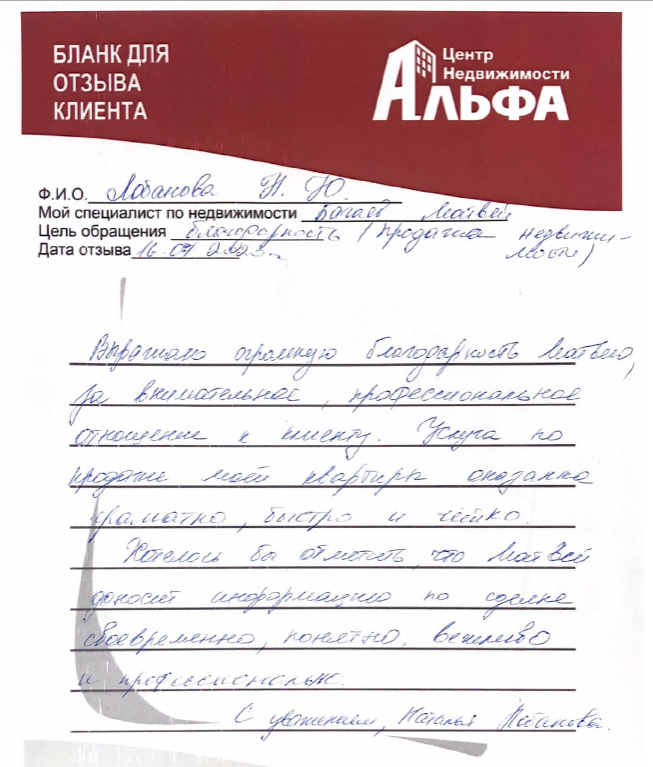 БЛАНК ДЛЯ
ОТЗЫВА
КЛИЕНТА
Центр
Недвижимости
АЛЬФА
Ф.И.О. Лобанова Н. Ю.
Мой специалист по недвижимости Багаев Матвей
Цель обращения благодарность (продажа недвижи-
мости)
Дата отзыва 16.07 2023г.
Выражаю огромную благодарность Матвею,
за внимательное, профессиональное
отношение к клиенту. Услуга по
продаже моей квартиры оказанна
грамотно, быстро и чётко.
Хотелось бы отметить, что Матвей
доносит информацию по сделке
своевременно, понятно, вежливо
и профессионально.
С уважением, Наталья Лобанова.